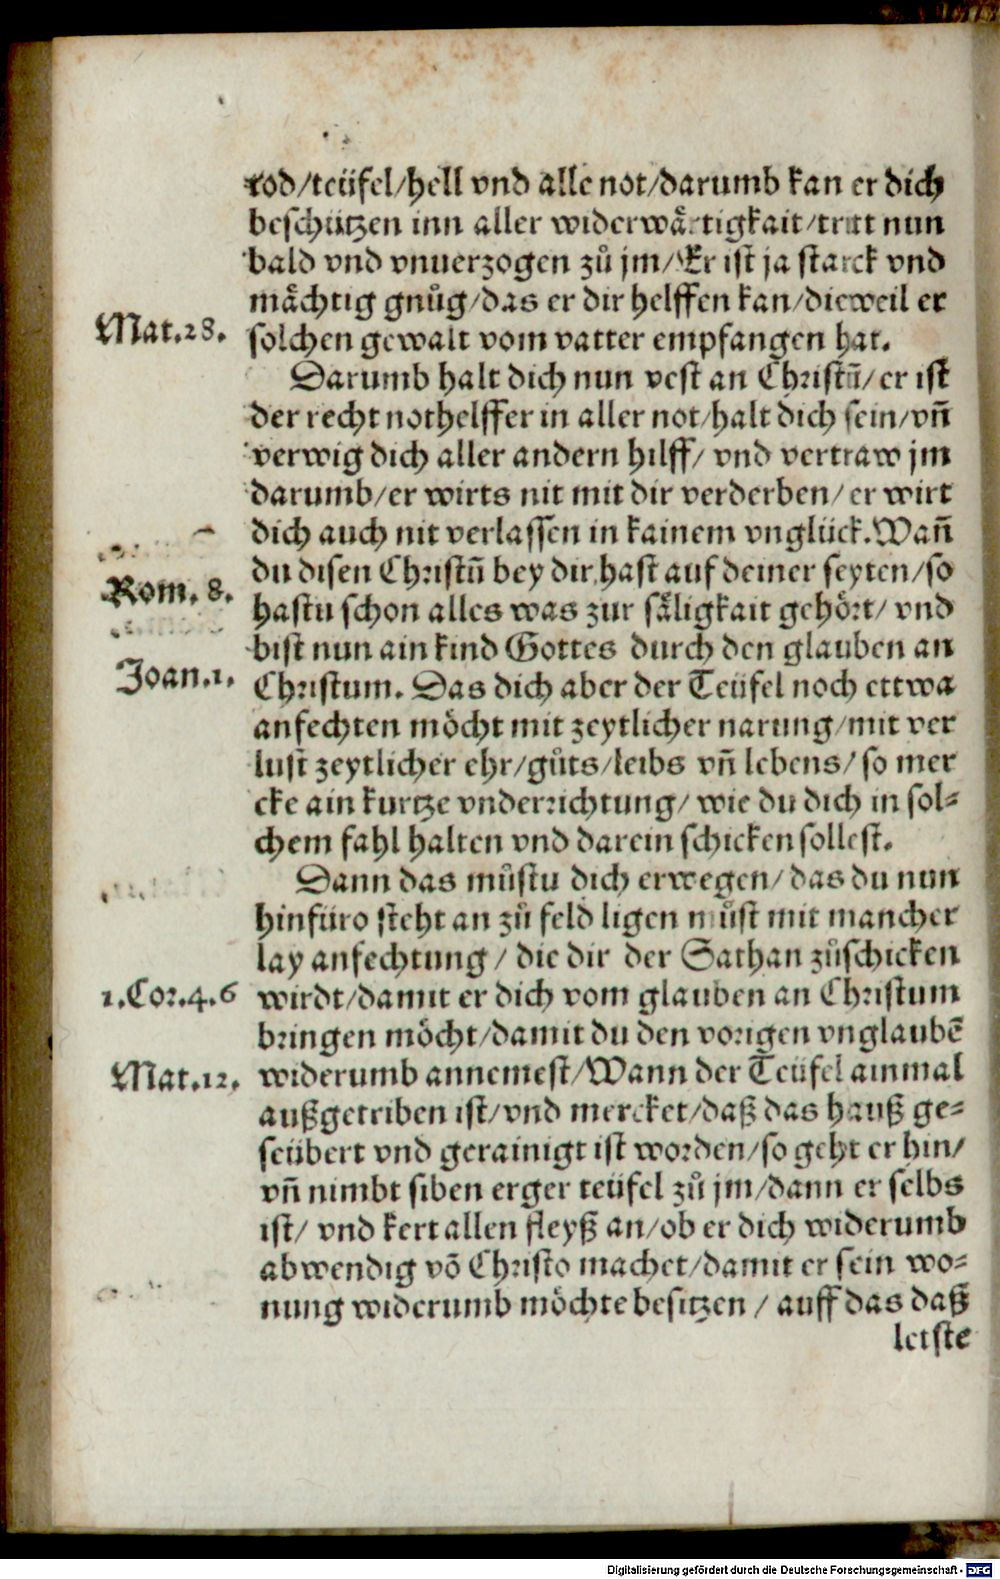 tod/teüfel/hell vnd alle not/darumb kan er dich
beschützen inn aller widerwaͤrtigkait/tritt nun
bald vnd vnuerzogen zů jm/Er ist ja starck vnd
maͤchtig gnůg/das er dir helffen kan/dieweil er
Mat.28. solchen gewalt vom vatter empfangen hat.
Darumb halt dich nun vest an Christū/er ist
der recht nothelffer in aller not/halt dich sein/vn̄
verwig dich aller andern hilff/ vnd vertraw jm
darumb/er wirts nit mit dir verderben/er wirt
dich auch nit verlassen in kainem vnglück.Wan̄
du disen Christū bey dir hast auf deiner seyten/so
Rom. 8. hastu schon alles was zur saͤligkait gehoͤrt/ vnd
bist nun ain kind Gottes durch den glauben an
Joan.1. Christum. Das dich aber der Teüfel noch ettwa
anfechten moͤcht mit zeytlicher narung/mit ver
lust zeytlicher ehr/gůts/leibs vn̄ lebens/so mer
cke ain kurtze vnderrichtung/ wie du dich in sol⸗
chem fahl halten vnd darein schicken sollest.
Dann das můstu dich erwegen/das du nun
hinfüro steht an zů feld ligen můst mit mancher
lay anfechtung/ die dir der Sathan zůschicken
1.Cor.4.6 wirdt/damit er dich vom glauben an Christum
bringen moͤcht/damit du den vorigen vnglaubē
Mat.12. widerumb annemest/Wann der Teüfel ainmal
außgetriben ist/vnd mercket/daß das hauß ge⸗
seübert vnd gerainigt ist worden/so geht er hin/
vn̄ nimbt siben erger teüfel zů jm/dann er selbs
ist/ vnd kert allen fleyß an/ob er dich widerumb
abwendig vō Christo machet/damit er sein wo⸗
nung widerumb moͤchte besitzen / auff das daß
letste
Digitalisierung gefördert durch die Deutsche Forschungsgemeinschaft - DFG